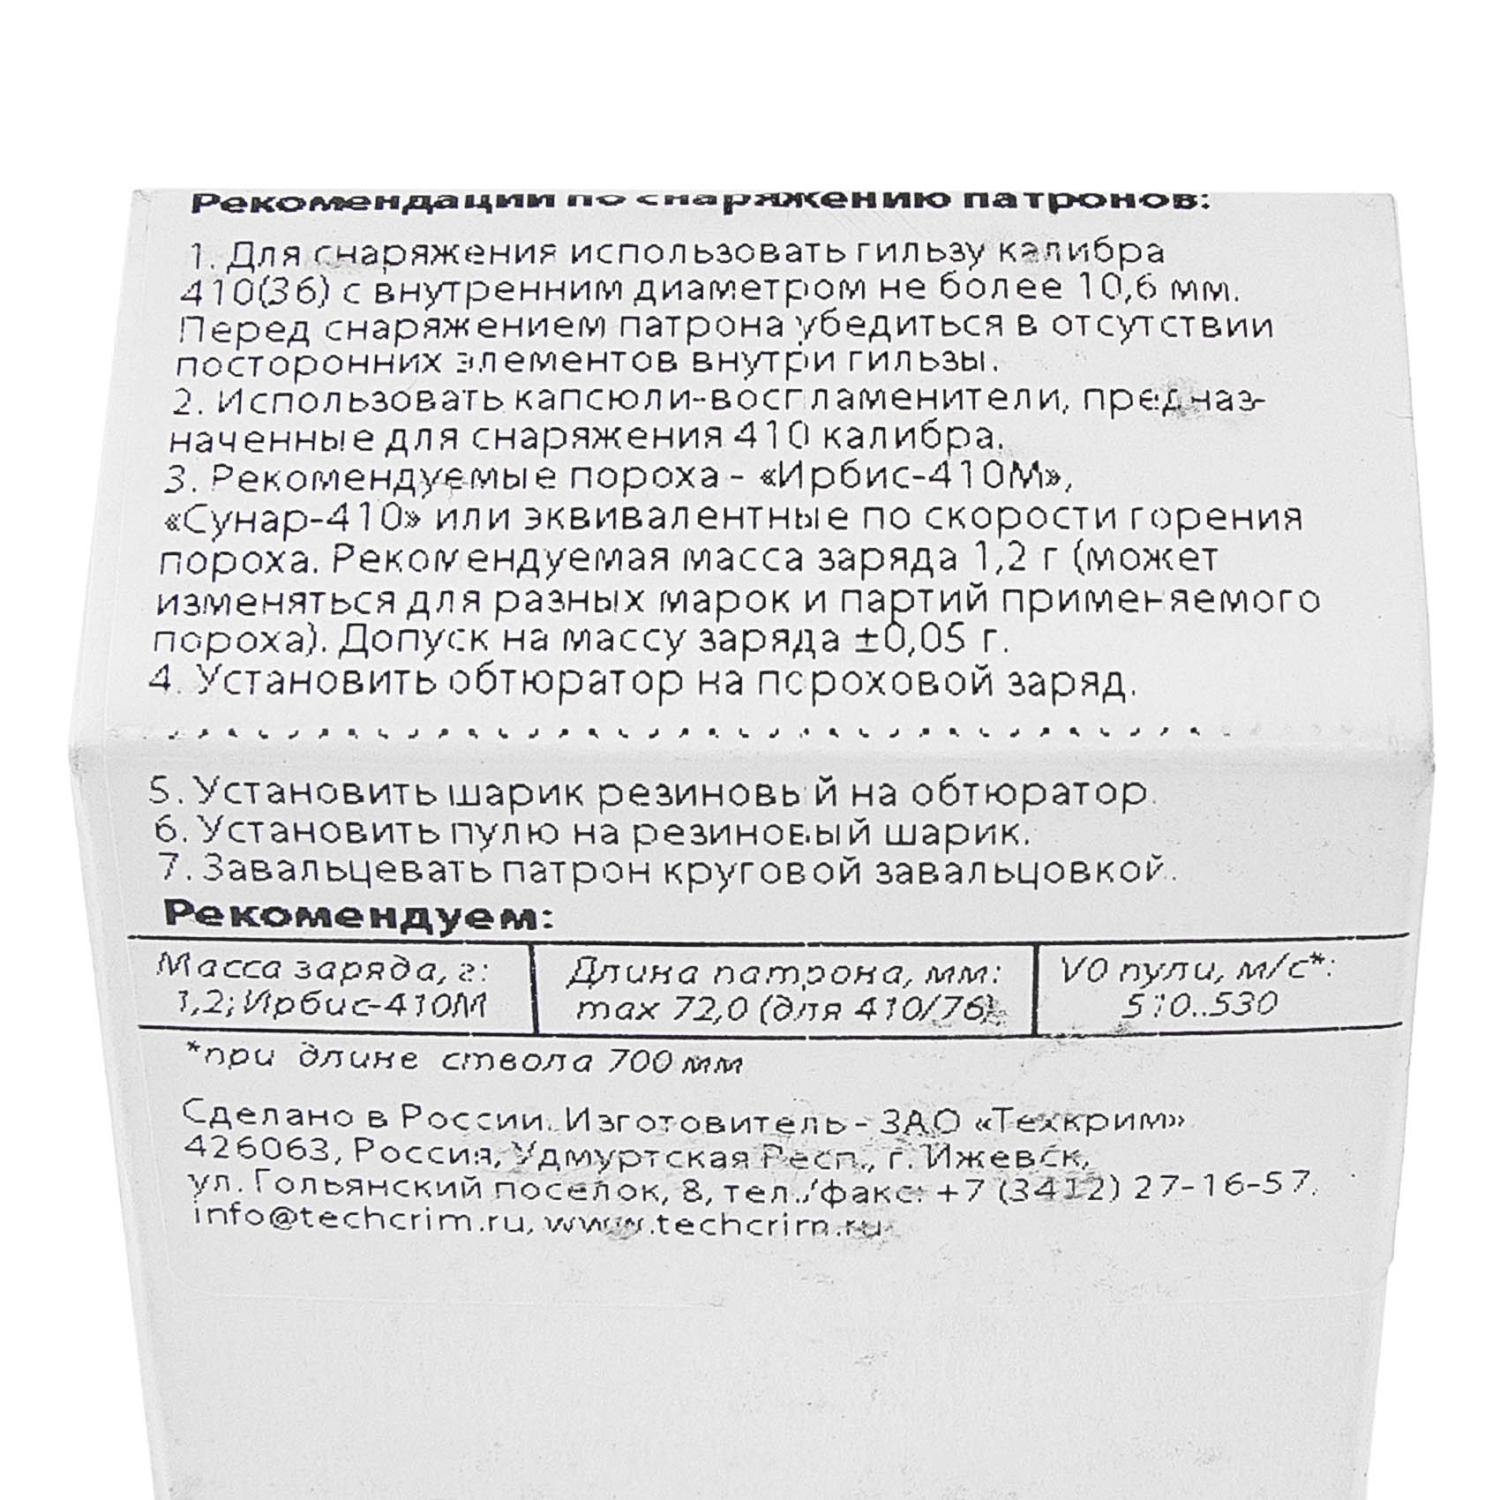 Рекомендации по снаряжению патронов:
1. Для снаряжения использовать гильзу калибра
410(36) с внутренним диаметром не более 10,6 мм.
Перед снаряжением патрона убедиться в отсутствии
посторонних элементов внутри гильзы.
2. Использовать капсюли-воспламенители, предназ-
наченные для снаряжения 410 калибра.
3. Рекомендуемые пороха - «Ирбис-410М»,
«Сунар-410» или эквивалентные по скорости горения
пороха. Рекомендуемая масса заряда 1,2 г (может
изменяться для разных марок и партий применяемого
пороха). Допуск на массу заряда ±0,05 г.
4. Установить обтюратор на пороховой заряд.
5. Установить шарик резиновый на обтюратор.
6. Установить пулю на резиновый шарик.
7. Завальцевать патрон круговой завальцовкой.
Рекомендуем:
Масса заряда, г: Длина патрона, мм: V0 пули, м/с*:
1,2; Ирбис-410М max 72,0 (для 410/76) 510..530
*при длине ствола 700 мм
Сделано в России. Изготовитель - ЗАО «Техкрим»
426063, Россия, Удмуртская Респ., г. Ижевск,
ул. Гольянский поселок, 8, тел./факс: +7 (3412) 27-16-57,
info@techcrim.ru, www.techcrim.ru